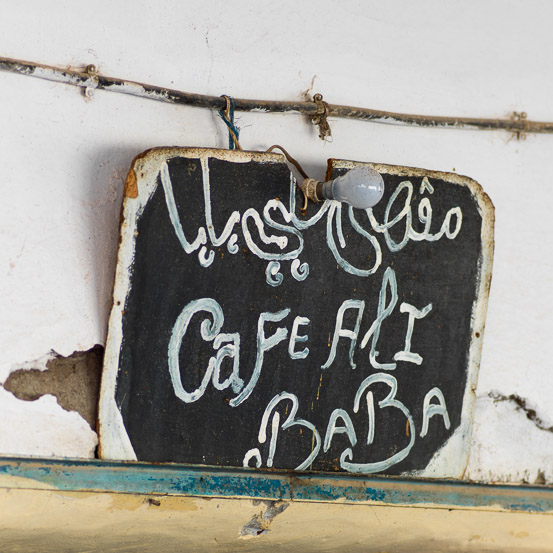 مقهى علي بابا
CaFE AlI
BABA